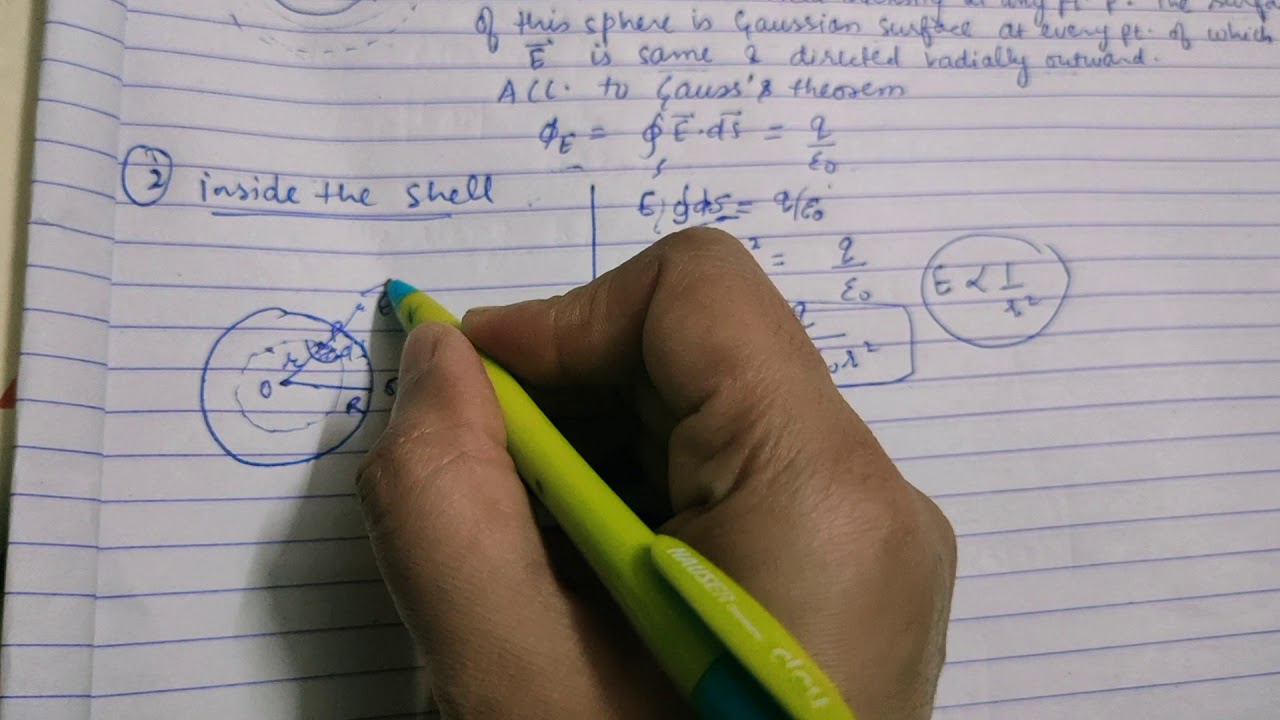 of this sphere is Gaussian surface at every pt. of which
E⃗ is same & directed radially outward.
Acc. to Gauss's theorem
ϕ_E = ∮_s E⃗·ds⃗ = q/ε₀
② inside the shell
E ∮ds = q/ε₀
² = q/ε₀
E ∝ 1/r²
₀r²
r
O
R
HAUSER